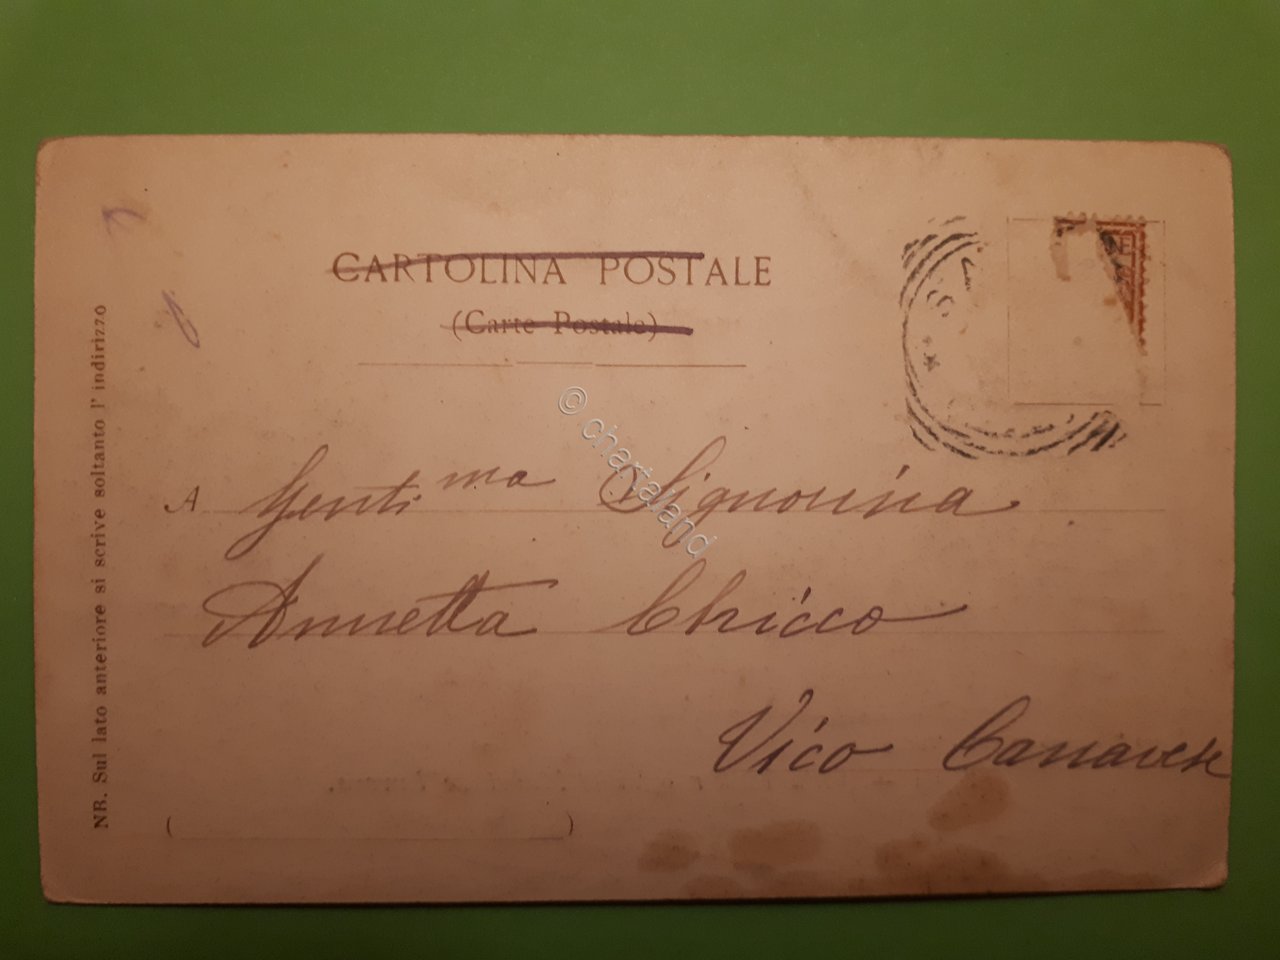 CARTOLINA POSTALE
(Carte Postale)
NE
A Genti.ma Signorina
Annetta Chicco
Vico Canavese
( )
NR. Sul lato anteriore si scrive soltanto l' indirizzo
© chartaland